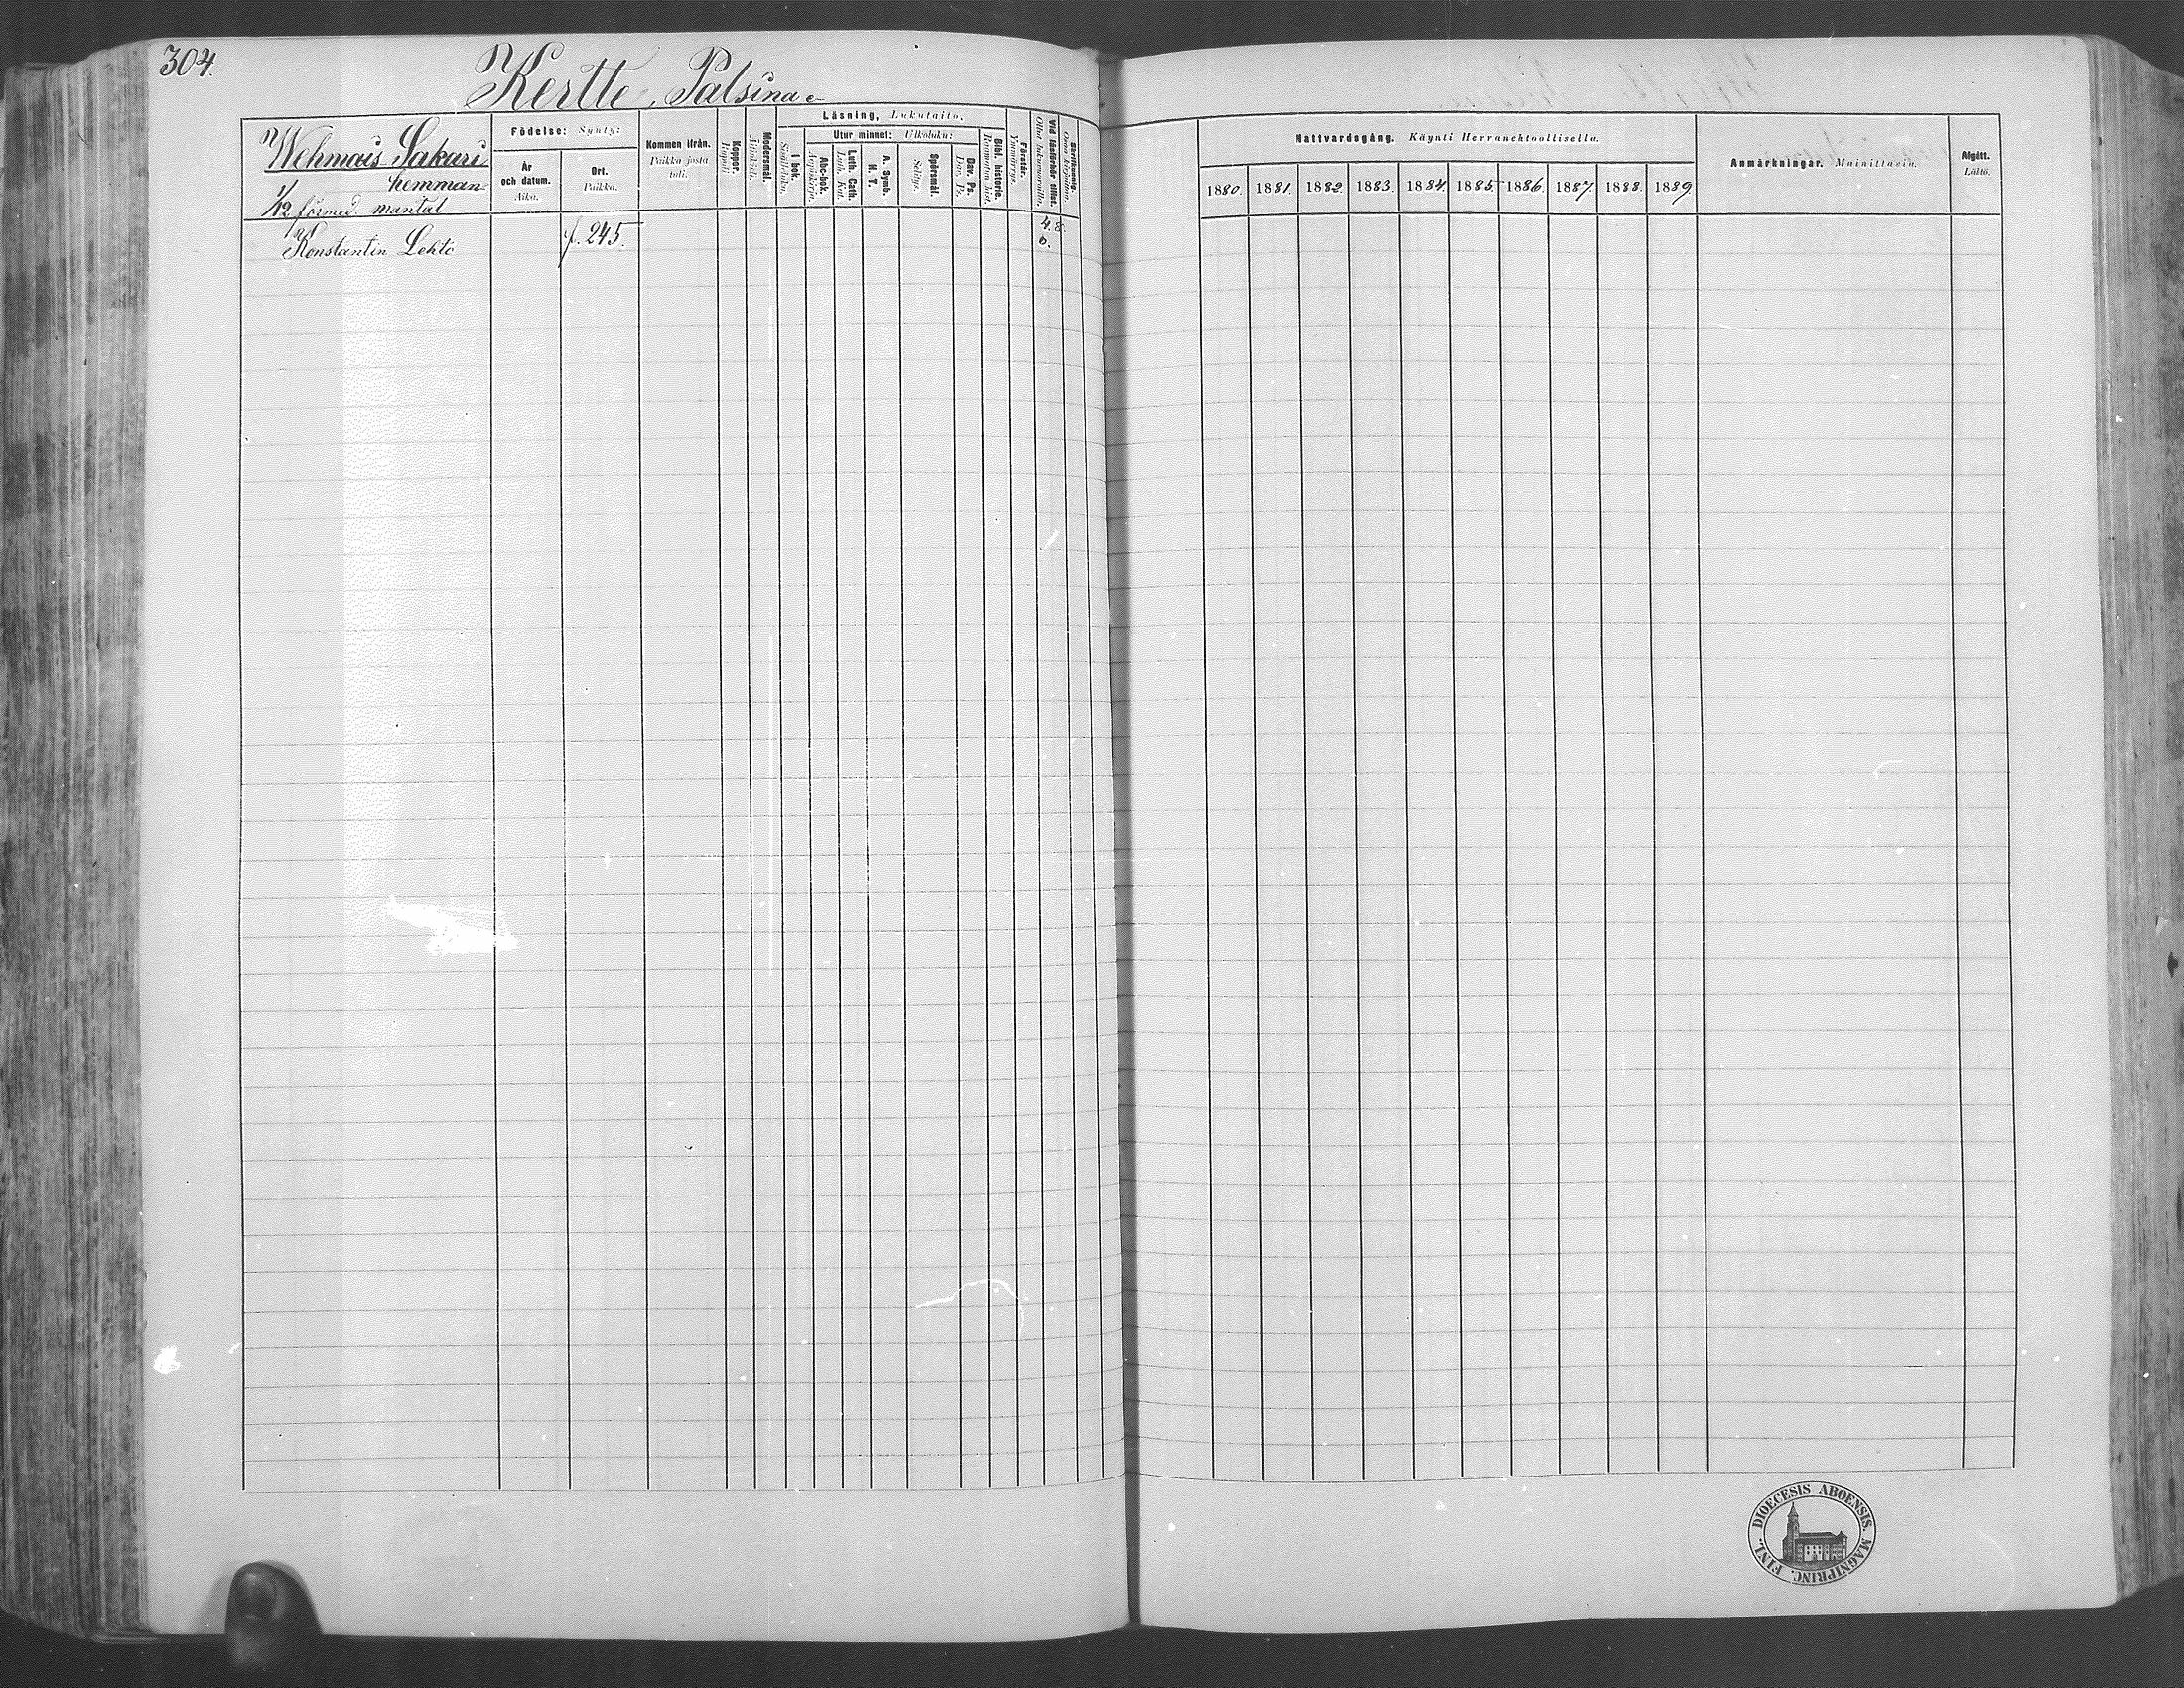 304.
Kertte, Palsina
Wehmais Sakari
hemman
1/12 förmed. mantal
Födelse: Synty:
År och datum. Aika.
Ort. Paikka.
Kommen ifrån. Paikka josta tuli.
Koppor. Rupuli.
Modersmål. Äitinkieli.
Läsning, Lukutaito,
I bok. Sisäluku.
Utur minnet: Ulkoluku:
Abc-bok. Aapiskirja.
Luth. Cath. Luth. Kat.
A. Symb. H. T.
Spörsmål. Selitys.
Dav. Ps. Dav. Ps.
Bibl. historie. Raamatun hist.
Förstår. Ymmärrys.
Vid läsförhör tillst. Ollut lukuvuoroilla.
Nattvardsgång. Käynti Herranehtoollisella.
1880. 1881. 1882. 1883. 1884. 1885 1886. 1887. 1888. 1889.
Anmärkningar. Mainittavia.
Afgått. Lähtö.
Konstantin Lehto p. 245. 4.8.
0.
DIOECESIS ABOENSIS. MAGNIPRINC. FINL.